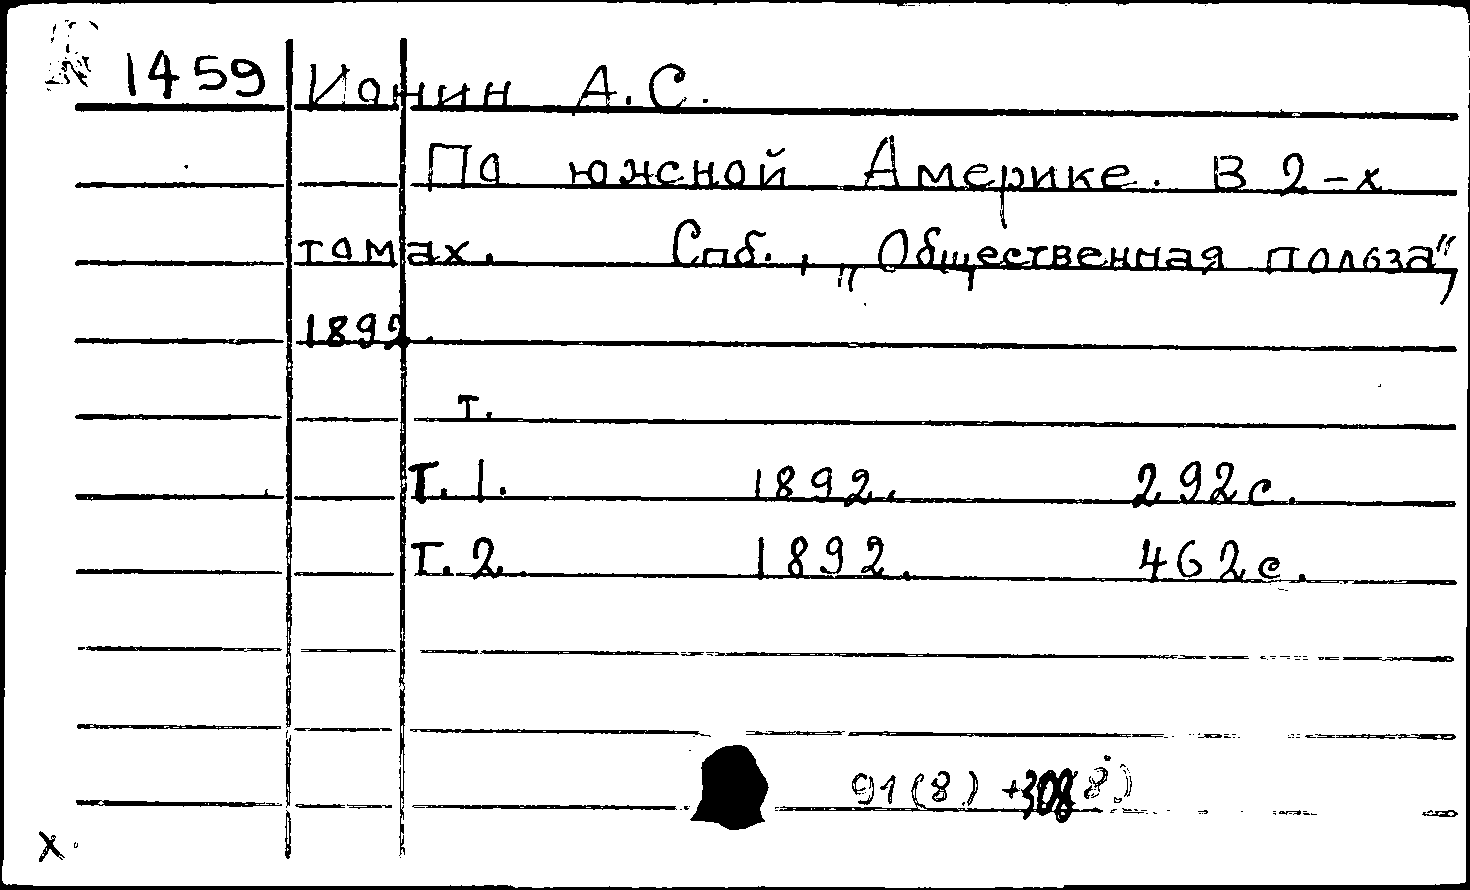 1459 Ионин А.С.
По южной Америке. В 2-х
томах. Спб., „Общественная польза",
1892.
т.
Т. 1. 1892. 292с.
Т. 2. 1892. 462с.
91(8) +308(8)
х.